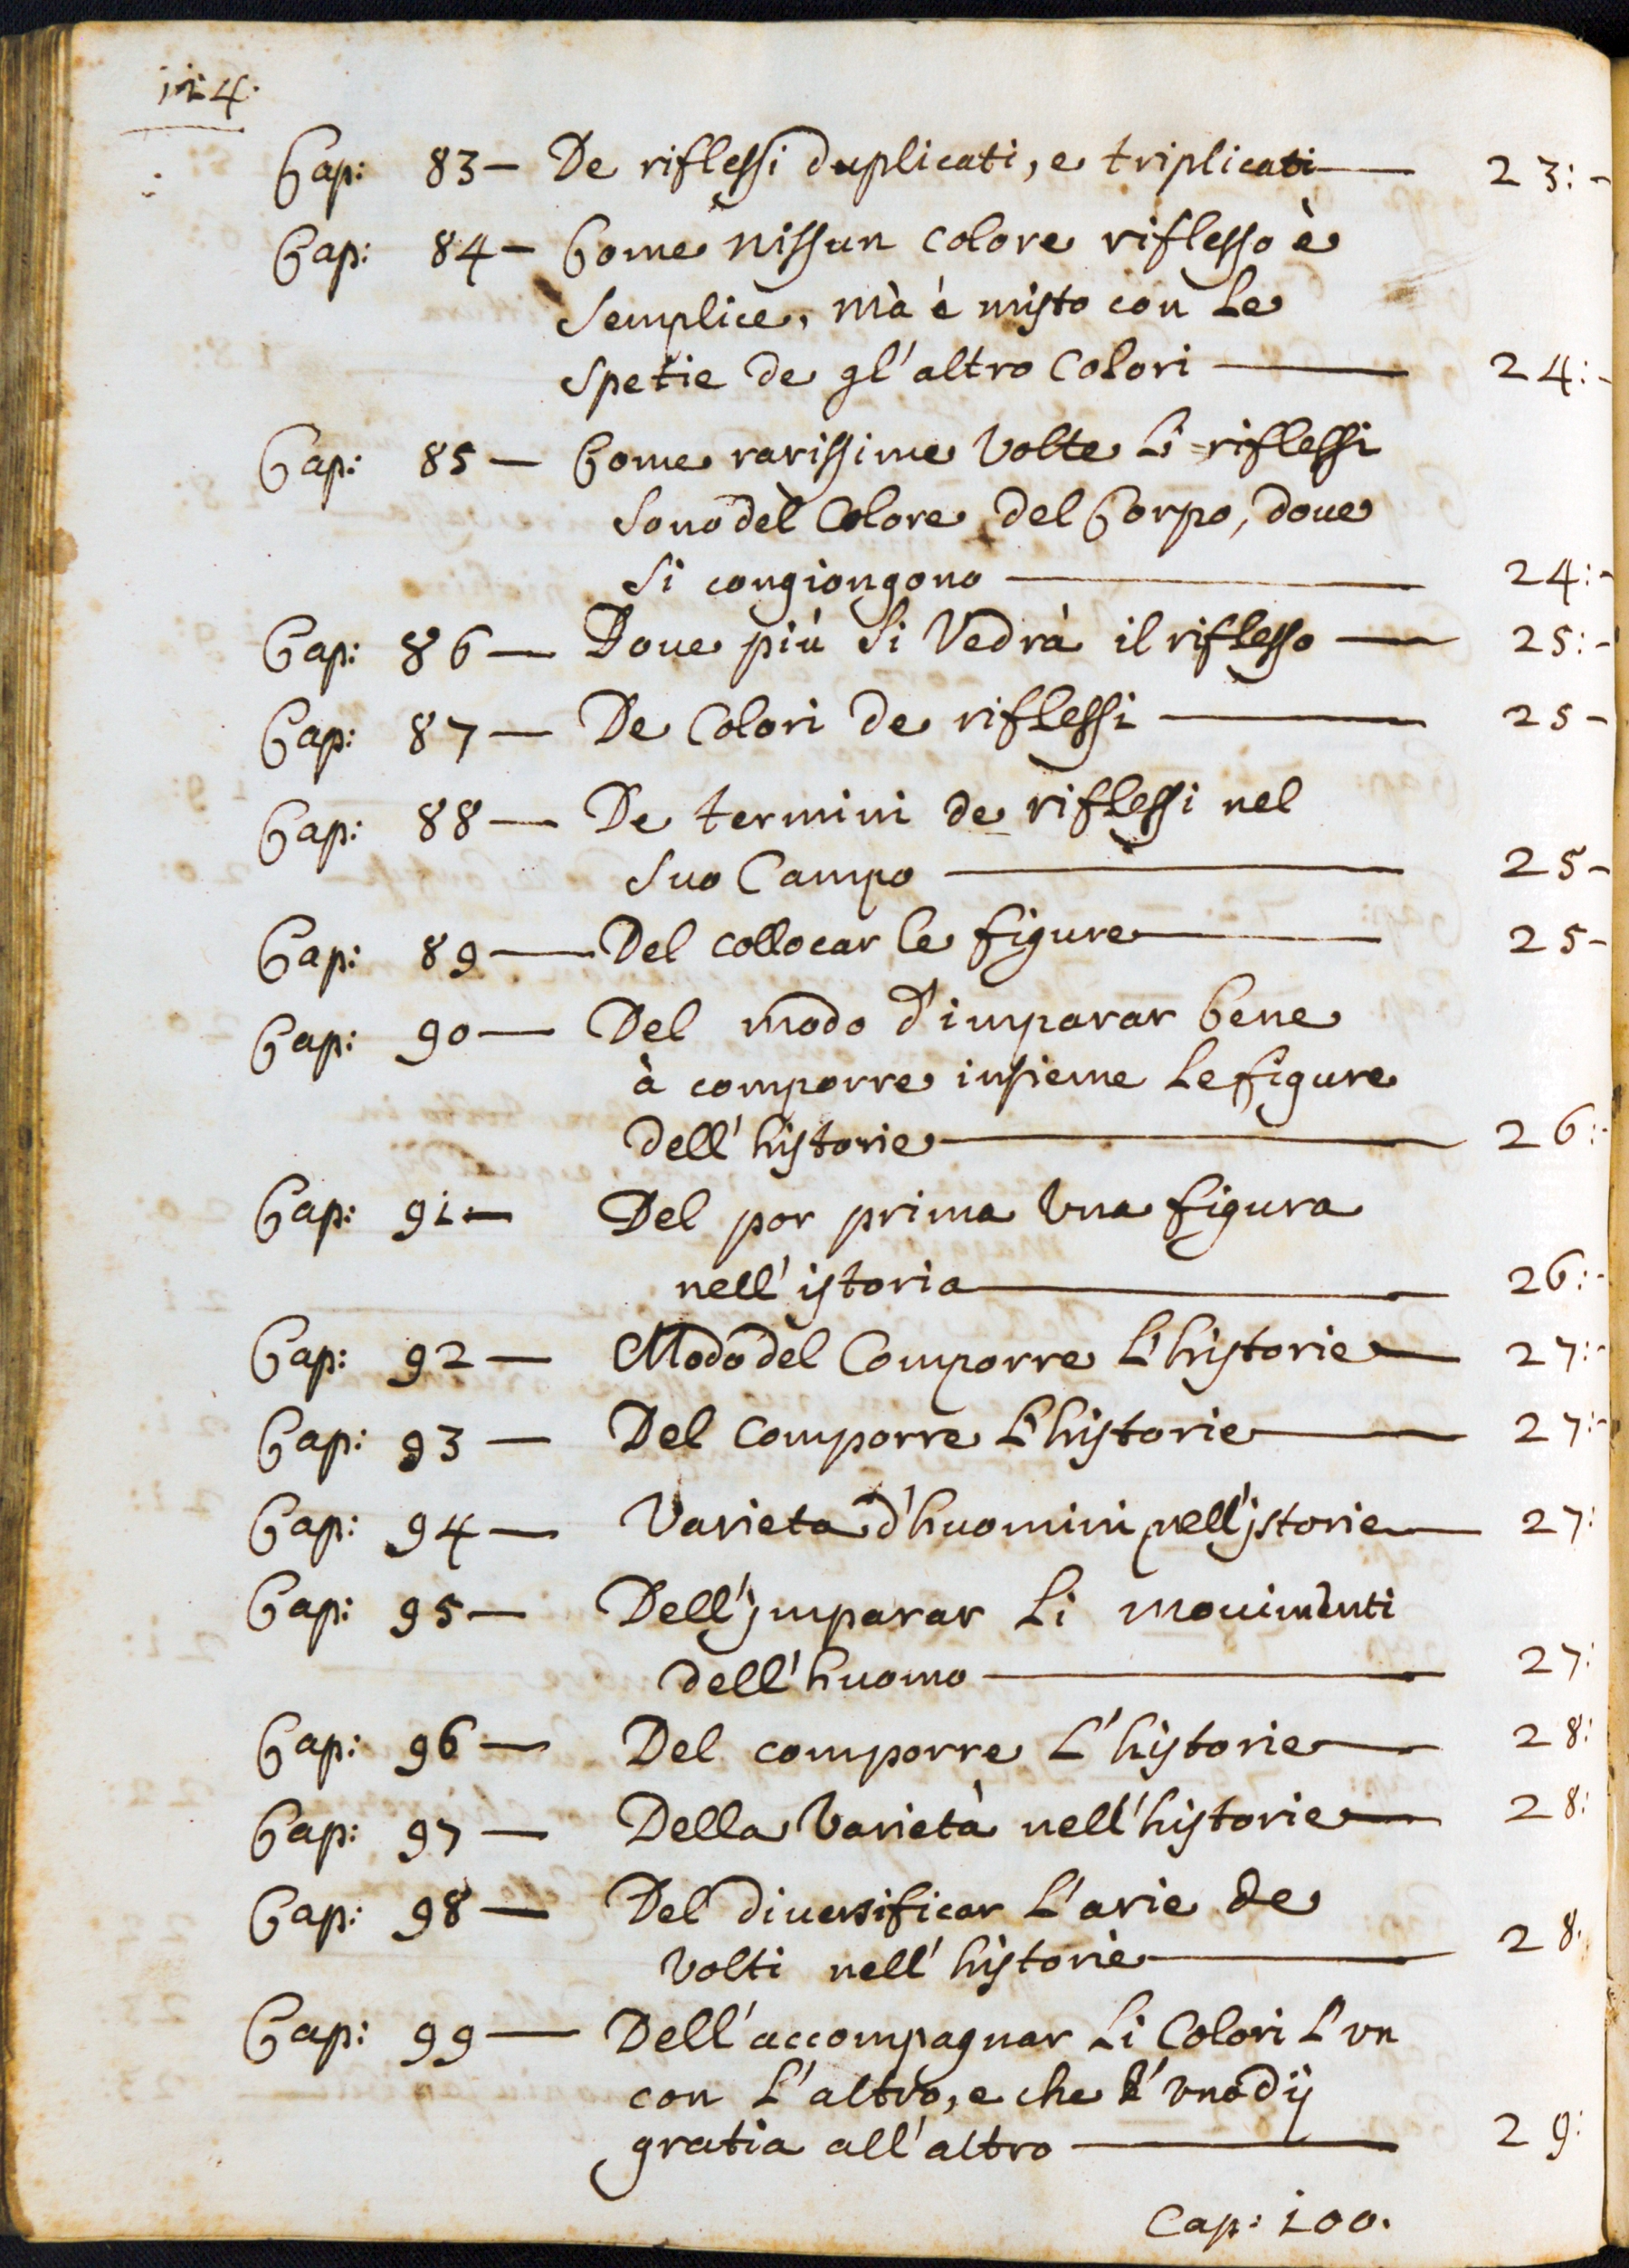 124.
Cap: 83 — De riflessi duplicati, e triplicati — 23: -
Cap: 84 — Come nissun colore riflesso è
semplice, mà è misto con Le
spetie de gl'altro Colori — 24: -
Cap: 85 — Come rarissime Volte Li riflessi
sono del Colore del Corpo, doue
si congiongono — 24: -
Cap: 86 — Doue più si Vedrà il riflesso — 25: -
Cap: 87 — De Colori de riflessi — 25 -
Cap: 88 — De termini de riflessi nel
suo Campo — 25 -
Cap: 89 — Del collocar le figure — 25 -
Cap: 90 — Del modo d'imparar bene
à comporre insieme Le figure
dell'historie — 26: -
Cap: 91 — Del por prima Vna figura
nell'istoria — 26: -
Cap: 92 — Modo del Comporre L'historie — 27: -
Cap: 93 — Del Comporre L'historie — 27: -
Cap: 94 — Varieta d'huomini nell'jstorie — 27:
Cap: 95 — Dell'jmparar Li mouimenti
dell'huomo — 27:
Cap: 96 — Del comporre L'historie — 28:
Cap: 97 — Della Varietà nell'historie — 28:
Cap: 98 — Del diuersificar L'arie de
Volti nell'historie — 28.
Cap: 99 — Dell'accompagnar Li Colori L'vn
con L'altro, e che L'vno dij
gratia all'altro — 29:
Cap: 100.